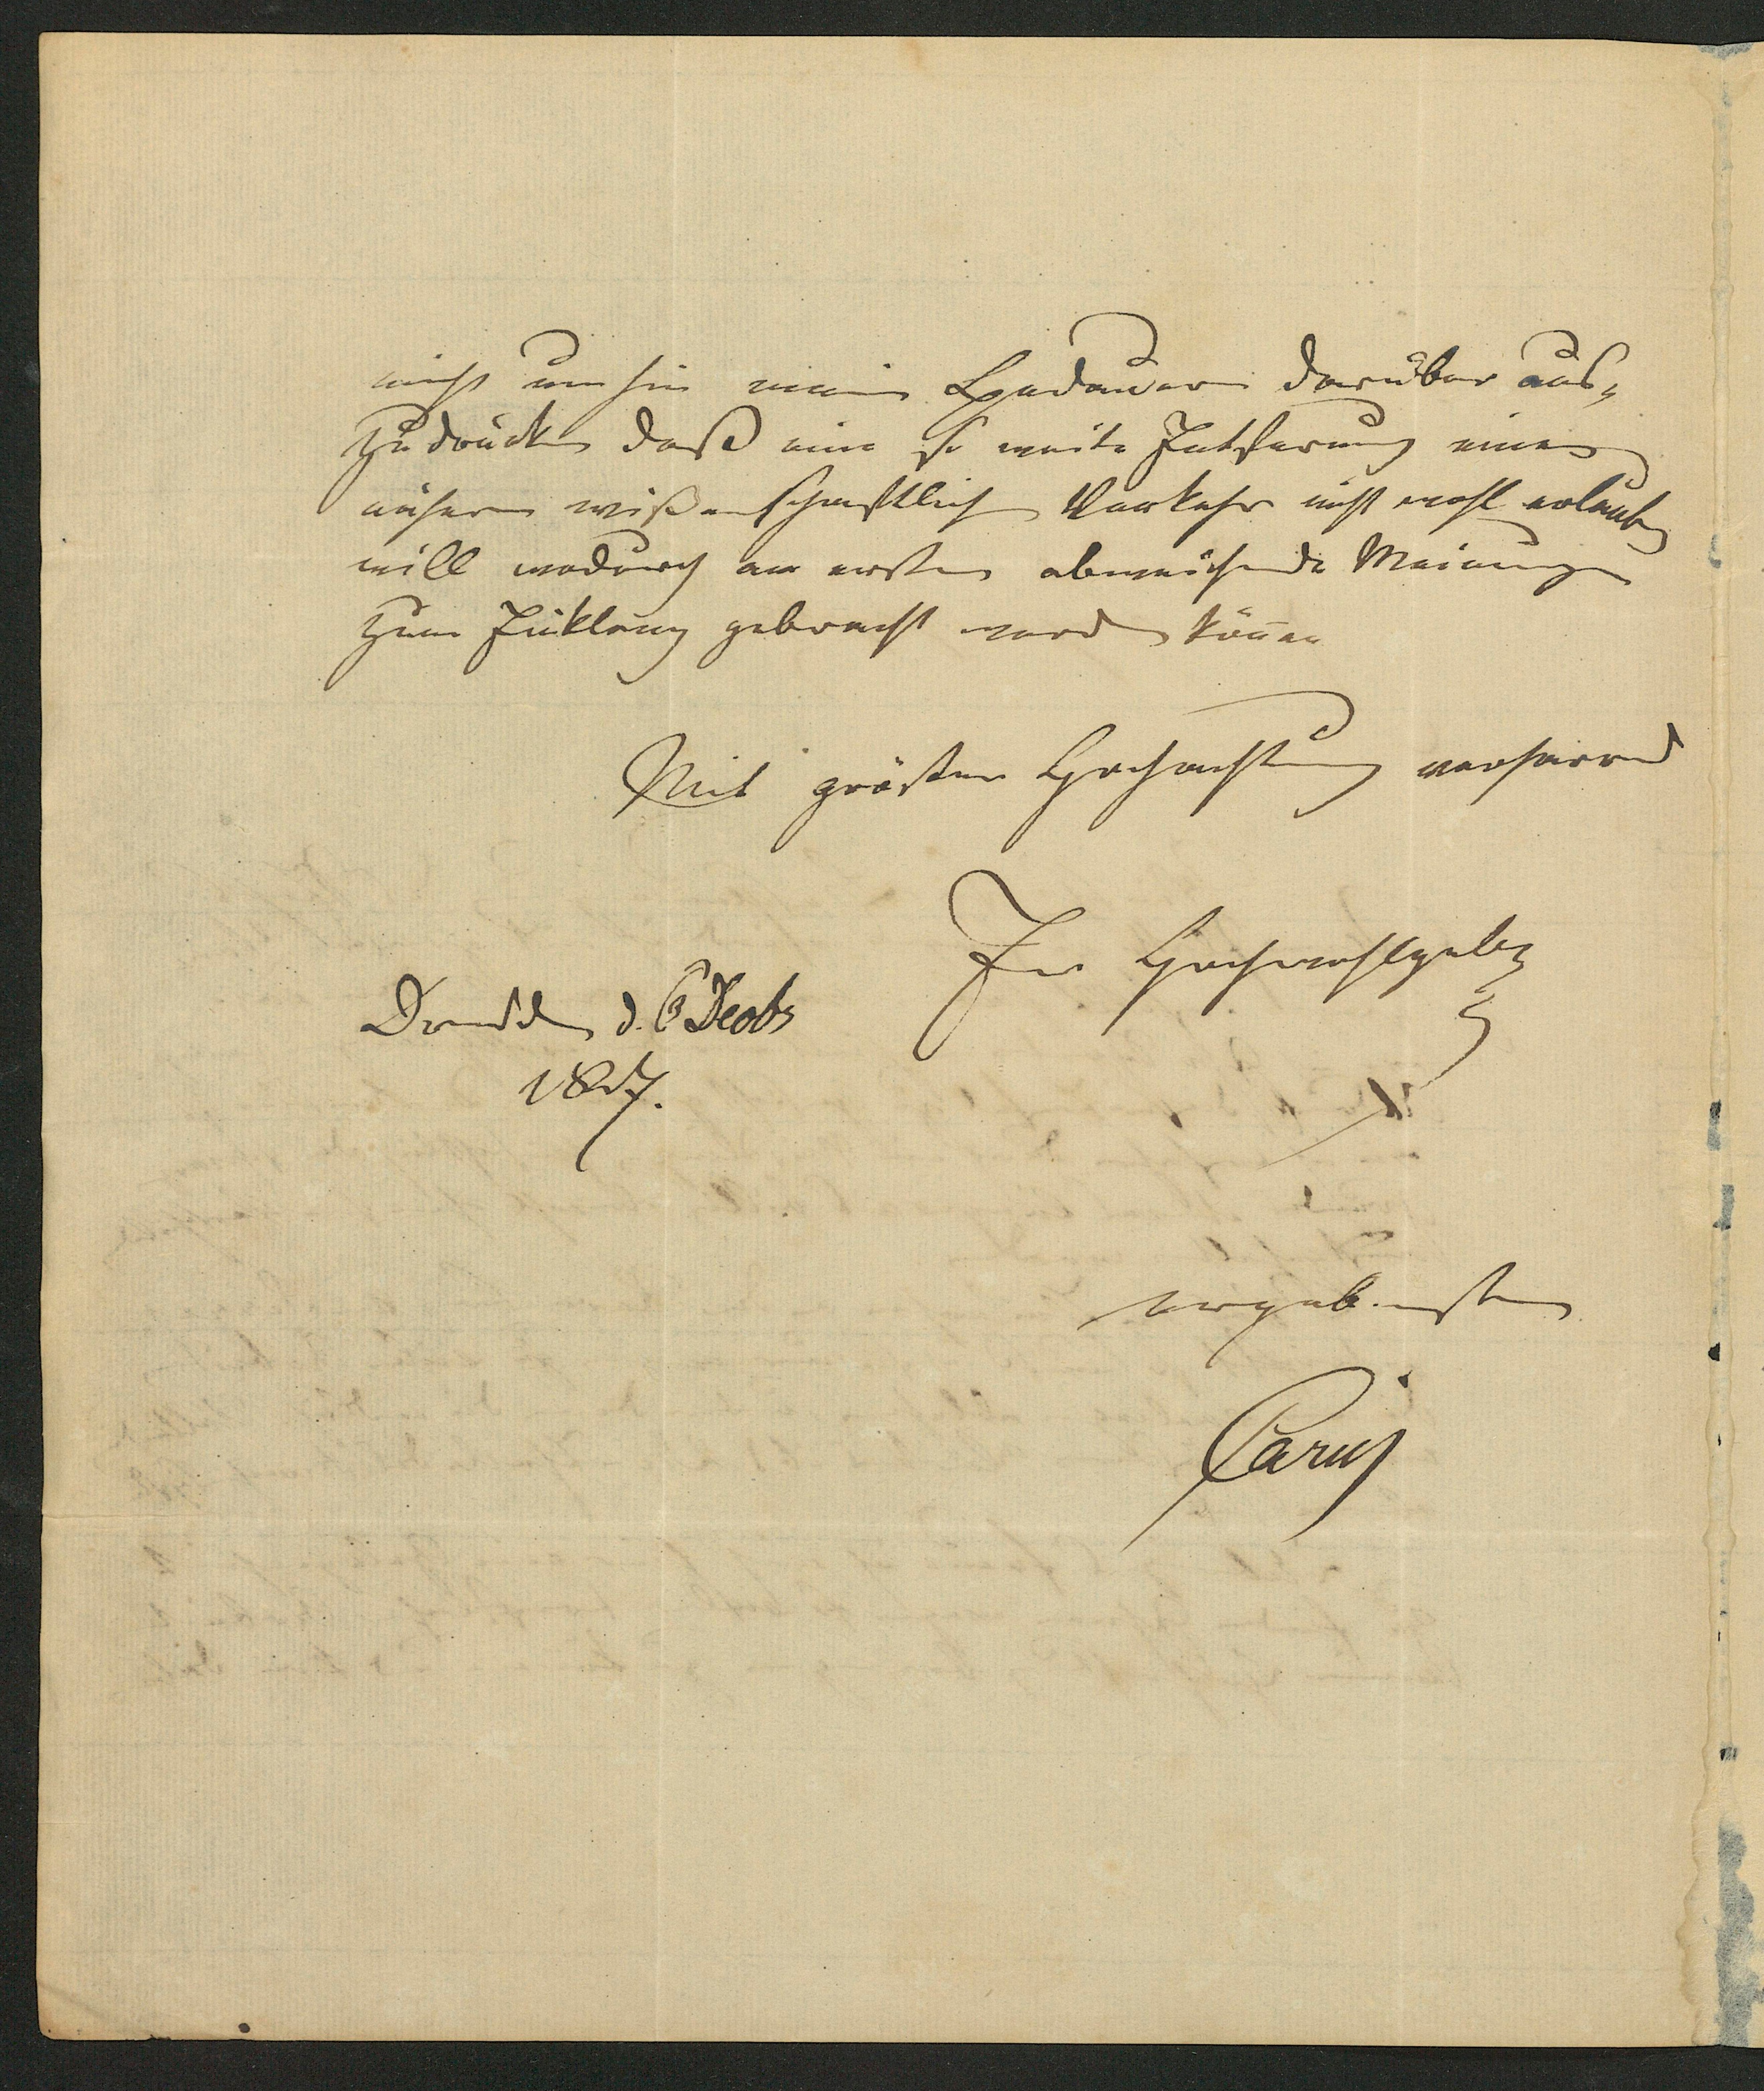 nicht umhin mein Bedauern darüber aus-
zudrücken daß eine so weite Entfernung einen
nähern wißenschaftlichen Verkehr nicht wohl erlauben
will wodurch am ersten abweichende Meinungen
zum Einklang gebracht werden können
Mit größter Hochachtung verharrend
Ew Hochwohlgeb
Dresden d. 6 Decbr
1827.
ergebenster
Carus